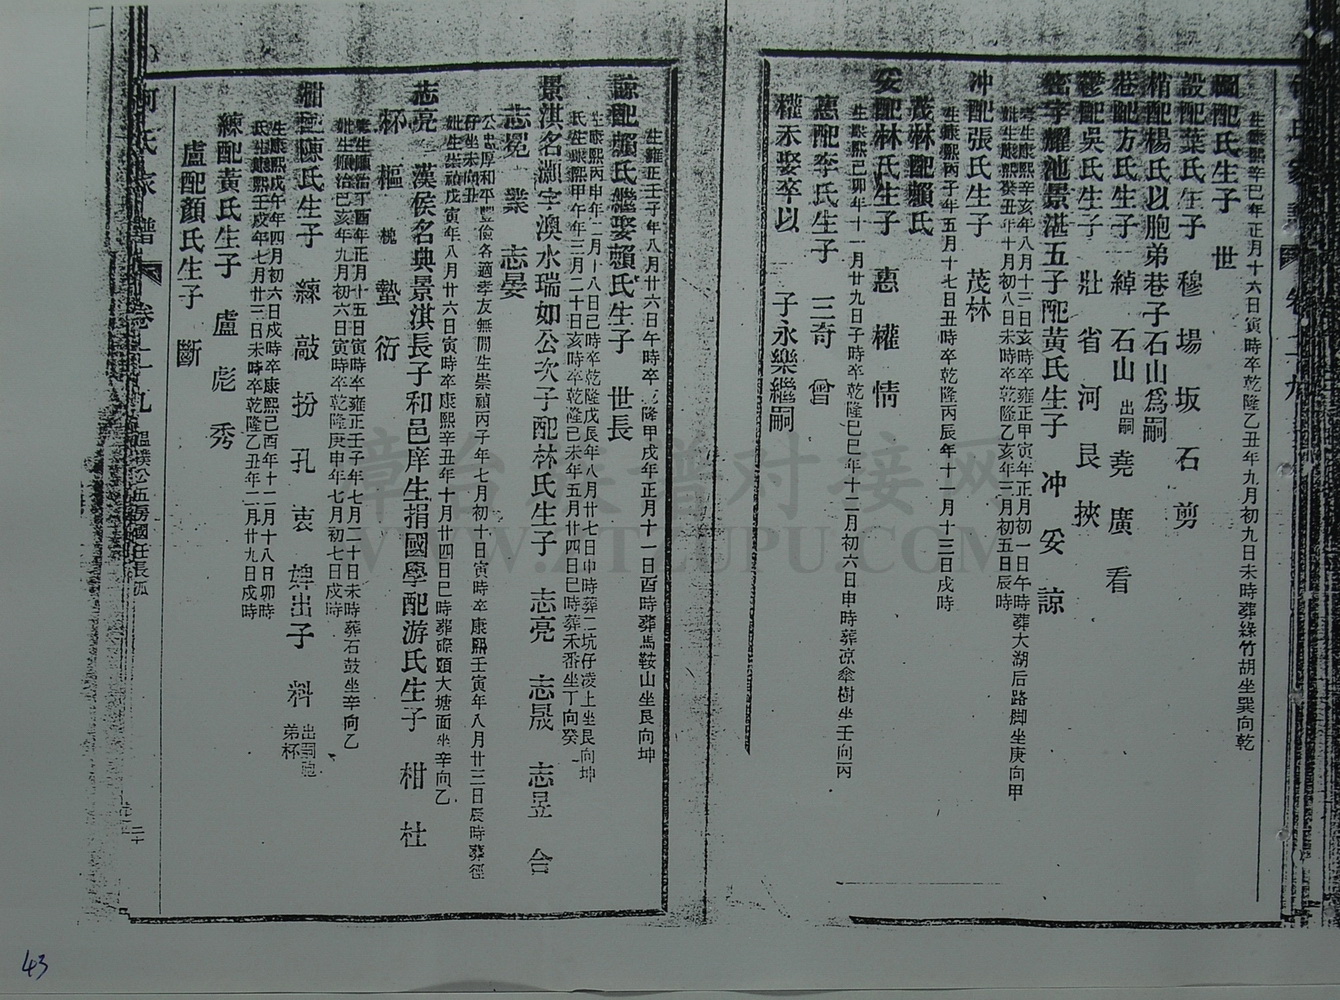 生康熙辛巳年正月十六日寅時卒乾隆乙丑年九月初九日未時葬綠竹胡坐巽向乾
配氏生子 世
設配葉氏生子 穆 場 坂 石 剪
楷配楊氏以胞弟巷子石山為嗣
巷配方氏生子 綽 石山出嗣 堯 廣 看
鬱配吳氏生子 壯 省 河 艮 挾
密字耀池景湛五子配黃氏生子 冲 妥 諒
生康熙辛亥年八月十三日亥時卒雍正甲寅年正月初一日午時葬大湖后路脚坐庚向甲
妣生康熙癸丑年十月初八日未時卒乾隆乙亥年三月初五日辰時
冲配張氏生子 茂林
生康熙丙子年五月十七日丑時卒乾隆丙辰年十一月十三日戌時
茂林配賴氏
妥配林氏生子 惠 權 情
生康熙己卯年十一月廿九日子時卒乾隆己巳年十二月初六日申時葬凉傘樹坐壬向丙
惠配李氏生子 三奇 曾
權未娶卒以 子永樂繼嗣
生雍正壬子年八月廿六日午時卒乾隆甲戌年正月十一日酉時葬馬鞍山坐艮向坤
諒配賴氏繼娶賴氏生子 世長
生康熙丙申年二月十八日巳時卒乾隆戊辰年八月廿七日申時葬二坑仔凌上坐艮向坤
氏生康熙甲午年三月二十日亥時卒乾隆己未年五月廿四日巳時葬禾番坐丁向癸
景淇名灝字澳水瑞如公次子配林氏生子 志亮 志晟 志昱 合
志冕 業 志晏
公忠厚和平豐儉各適孝友無間生崇禎丙子年七月初十日寅時卒康熙壬寅年八月廿三日辰時葬徑
仔坐未向丑
妣生崇禎戊寅年八月廿六日寅時卒康熙辛丑年十月廿四日巳時葬磜頭大塘面坐辛向乙
志亮 漢侯名典景淇長子和邑庠生捐國學配游氏生子 柑 杜
杯 樞 桄 蟄 衍
生順治丁酉年正月十五日寅時卒雍正壬子年七月二十日未時葬石鼓坐辛向乙
妣生順治己亥年九月初六日寅時卒乾隆庚申年七月初七日戌時
柑配陳氏生子 練 敲 扮 孔 衷 婢出子 料出嗣胞弟杯
生康熙戊午年四月初六日戌時卒康熙己酉年十一月十八日卯時
氏生康熙壬戌年七月廿三日未時卒乾隆乙丑年二月廿九日戌時
練配黃氏生子 盧 彪 秀
盧配顏氏生子 斷
何氏家譜 卷二十九
二十
章台族譜对接网
WWW.ZTZUPU.COM
43